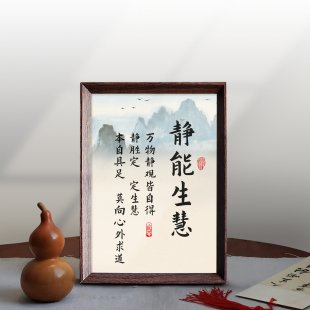 静能生慧
万物静观皆自得
静胜定 定生慧
本自具足 莫向心外求道